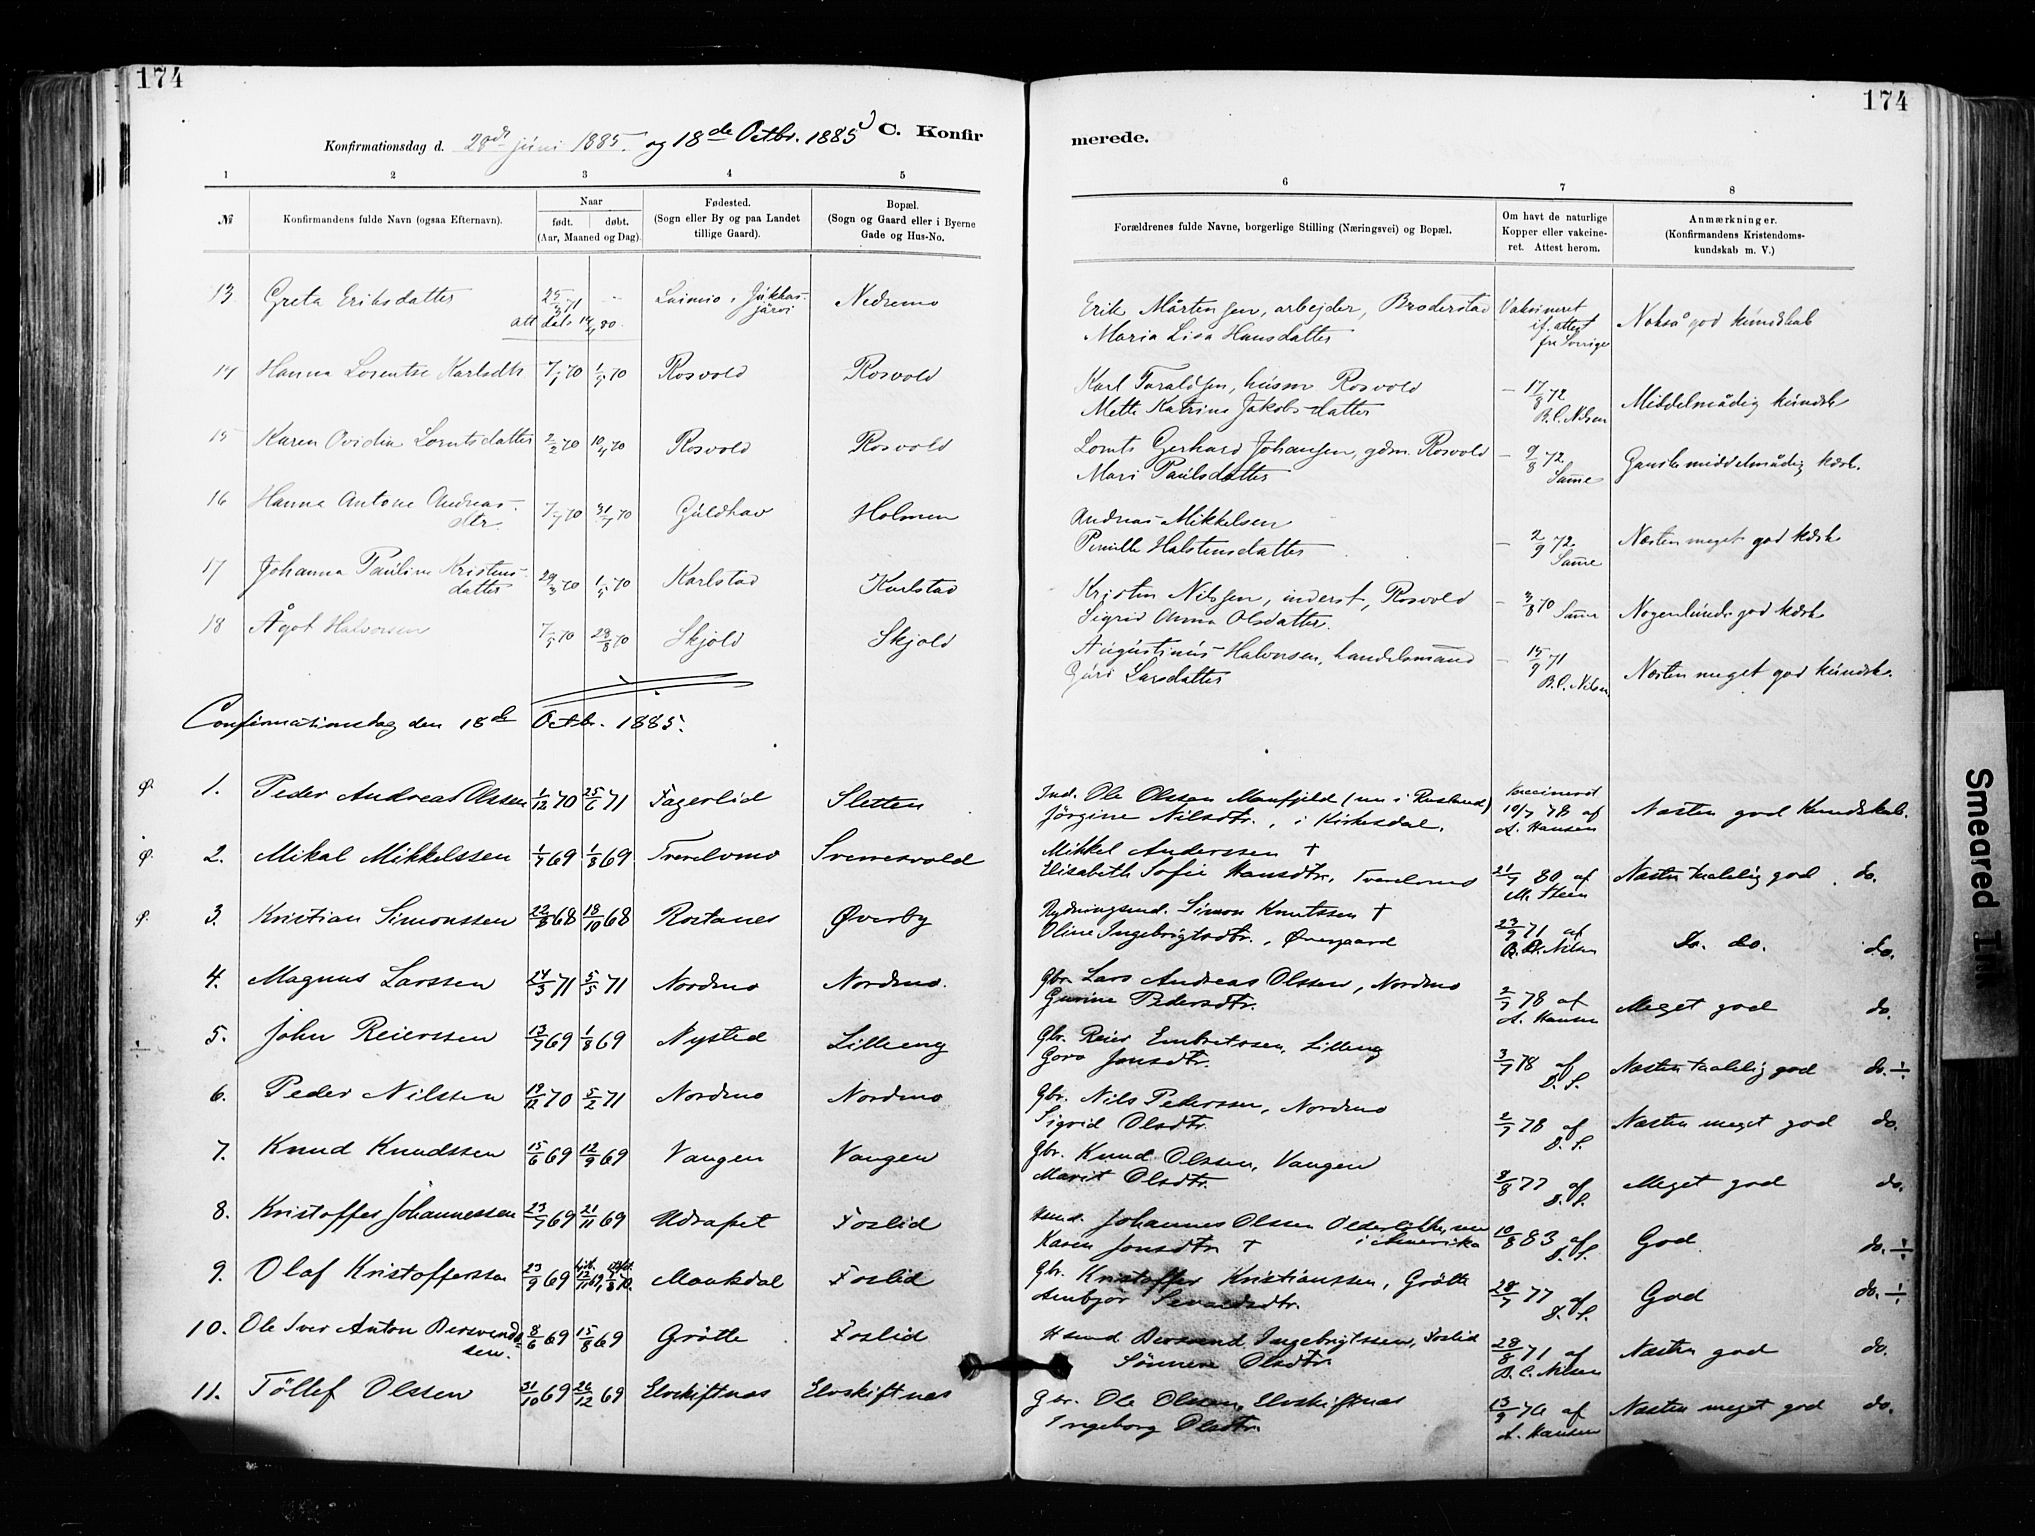 174
174
Konfirmationsdag d. 28de juni 1885. og 18de Octbr. 1885
C. Konfirmerede.
1 2 3 4 5 6 7 8
№
Konfirmandens fulde Navn (ogsaa Efternavn).
Naar
født. døbt.
(Aar, Maaned og Dag).
Fødested.
(Sogn eller By og paa Landet
tillige Gaard).
Bopæl.
(Sogn og Gaard eller i Byerne
Gade og Hus-No.
Forældrenes fulde Navne, borgerlige Stilling (Næringsvei) og Bopæl.
Om havt de naturlige
Kopper eller vakcine-
ret. Attest herom.
Anmærkninger.
(Konfirmandens Kristendoms-
kundskab m. V.)
13 Greta Eriksdatter 25/3 71 Laimio, Jukkas-
järvi Nedremo Erik Mårtensen, arbejder, Broderstad Vaksineret
Maria Lisa Hansdatter if. attest
fra Sverige Nokså god kundskab
14 Hanna Lorentse Karlsdtr 7/1 70 1/5 70 Rosvold Rosvold Karl Taraldsen, husm Rosvold
Mette Katrine Jakobsdatter – 17/8 72
B.C. Nilsen Middelmådig kundsk
15 Karen Ovidia Lorntsdatter 2/2 70 10/4 70 Rosvold Rosvold Lornts Gerhard Johansen, gdm. Rosvold
Mari Paulsdatter – 9/8 72
Samme Ganske middelmådig kdsk.
16 Hanna Antone Andreas-
dtr 7/7 70 31/7 70 Guldhav Holmen Andreas Mikkelsen
Pernille Halstensdatter – 2/9 72
Samme Næsten meget god kdsk
17 Johanna Pauline Kristens-
datter 29/3 70 1/5 70 Karlstad Karlstad Kristen Nilsen, inderst, Rosvold
Sigrid Anna Olsdatter. – 3/8 70 Samme Nogenlunde god kdsk
18 Ågot Halvorsen 7/5 70 28/8 70 Skjold Skjold Augustinus Halvorsen, handelsmand
Guri Larsdatter – 15/9 71
B.C. Nilsen Næsten meget god kundsk.
Confirmationsdag den 18de Octbr. 1885.
Ø. 1. Peder Andreas Olssen 1/12 70 25/6 71 Fagerlid Sletten Ind. Ole Olssen Maufjeld (nu i Rusland)
Jörgine Nilsdtr., i Kirkesdal. Vaccineret
10/7 78 af
A. Hansen Næsten god Kundskab.
Ø. 2. Mikal Mikkelssen 1/7 69 1/8 69 Tverelvmo Sverresvold Mikkel Anderssen †
Elisabeth Sofie Hansdtr, Tverelvmo 21/7 80 af
M. Steen Næsten taalelig god do.
Ø. 3. Kristian Simonssen 22/8 68 18/10 68 Rostanes Øverby Rydningsmd. Simon Knutssen †
Oline Ingebrigtsdtr., Øvergaard 23/9 71 af
B. C. Nilsen Do. do. do.
4. Magnus Larssen 24/3 71 5/5 71 Nordmo Nordmo. Gbr. Lars Andreas Olssen, Nordmo
Gurine Pedersdtr. 2/7 78 af
A. Hansen Meget god do.
5. John Reierssen 13/7 69 1/8 69 Nysted Lilleng Gbr. Reier Embretssen, Lilleng
Goro Jonsdtr. 3/7 78 af
D. S. Næsten taalelig god do. ÷
6. Peder Nilssen 19/12 70 5/2 71 Nordmo Nordmo Gbr. Nils Pederssen, Nordmo
Sigrid Olsdtr. 2/7 78 af
D. S. Næsten meget god do.
7. Knud Knudssen 15/6 69 12/9 69 Vangen Vangen Gbr. Knud Olssen, Vangen
Marit Olsdtr. 8/8 77 af
D. S. Meget god do.
8. Kristoffer Johannessen 23/7 69 21/11 69 Foslid Husmd. Johannes Olssen
Karen Jonsdtr † i Amerika 10/8 83 af
D. S. God do. ÷
9. Olaf Kristofferssen 23/9 69 Maukdal Foslid Gbr. Kristoffer Kristianssen, Grötte
28/7 77 af
D. S. God do. ÷
10. Ole Iver Anton Bersvend-
sen. 8/6 69 15/8 69 Grötte Foslid Husmd Bersvend Ingebrigtssen, Foslid
Sönnene Olsdtr. 28/8 71 af
B. C. Nilsen Næsten god do.
11. Töllef Olssen 31/10 69 26/12 69 Elvskiftnes Elvskiftnes Gbr. Ole Olssen, Elvskiftnes
Ingeborg Olsdtr. 13/9 76 af
A. Hansen Næsten meget god do.
Smeared Ink